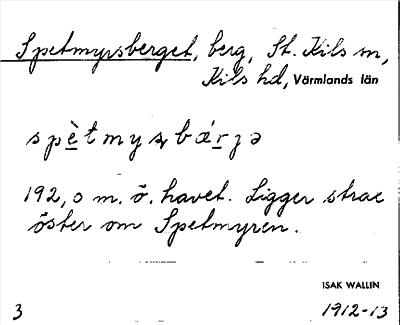 Spetmyrsberget, berg, St. Kils sn,
Kils hd, Värmlands län
spètmysbǽrjə
192,0 m. ö. havet. Ligger strax
öster om Spetmyren.
ISAK WALLIN
3 1912-13